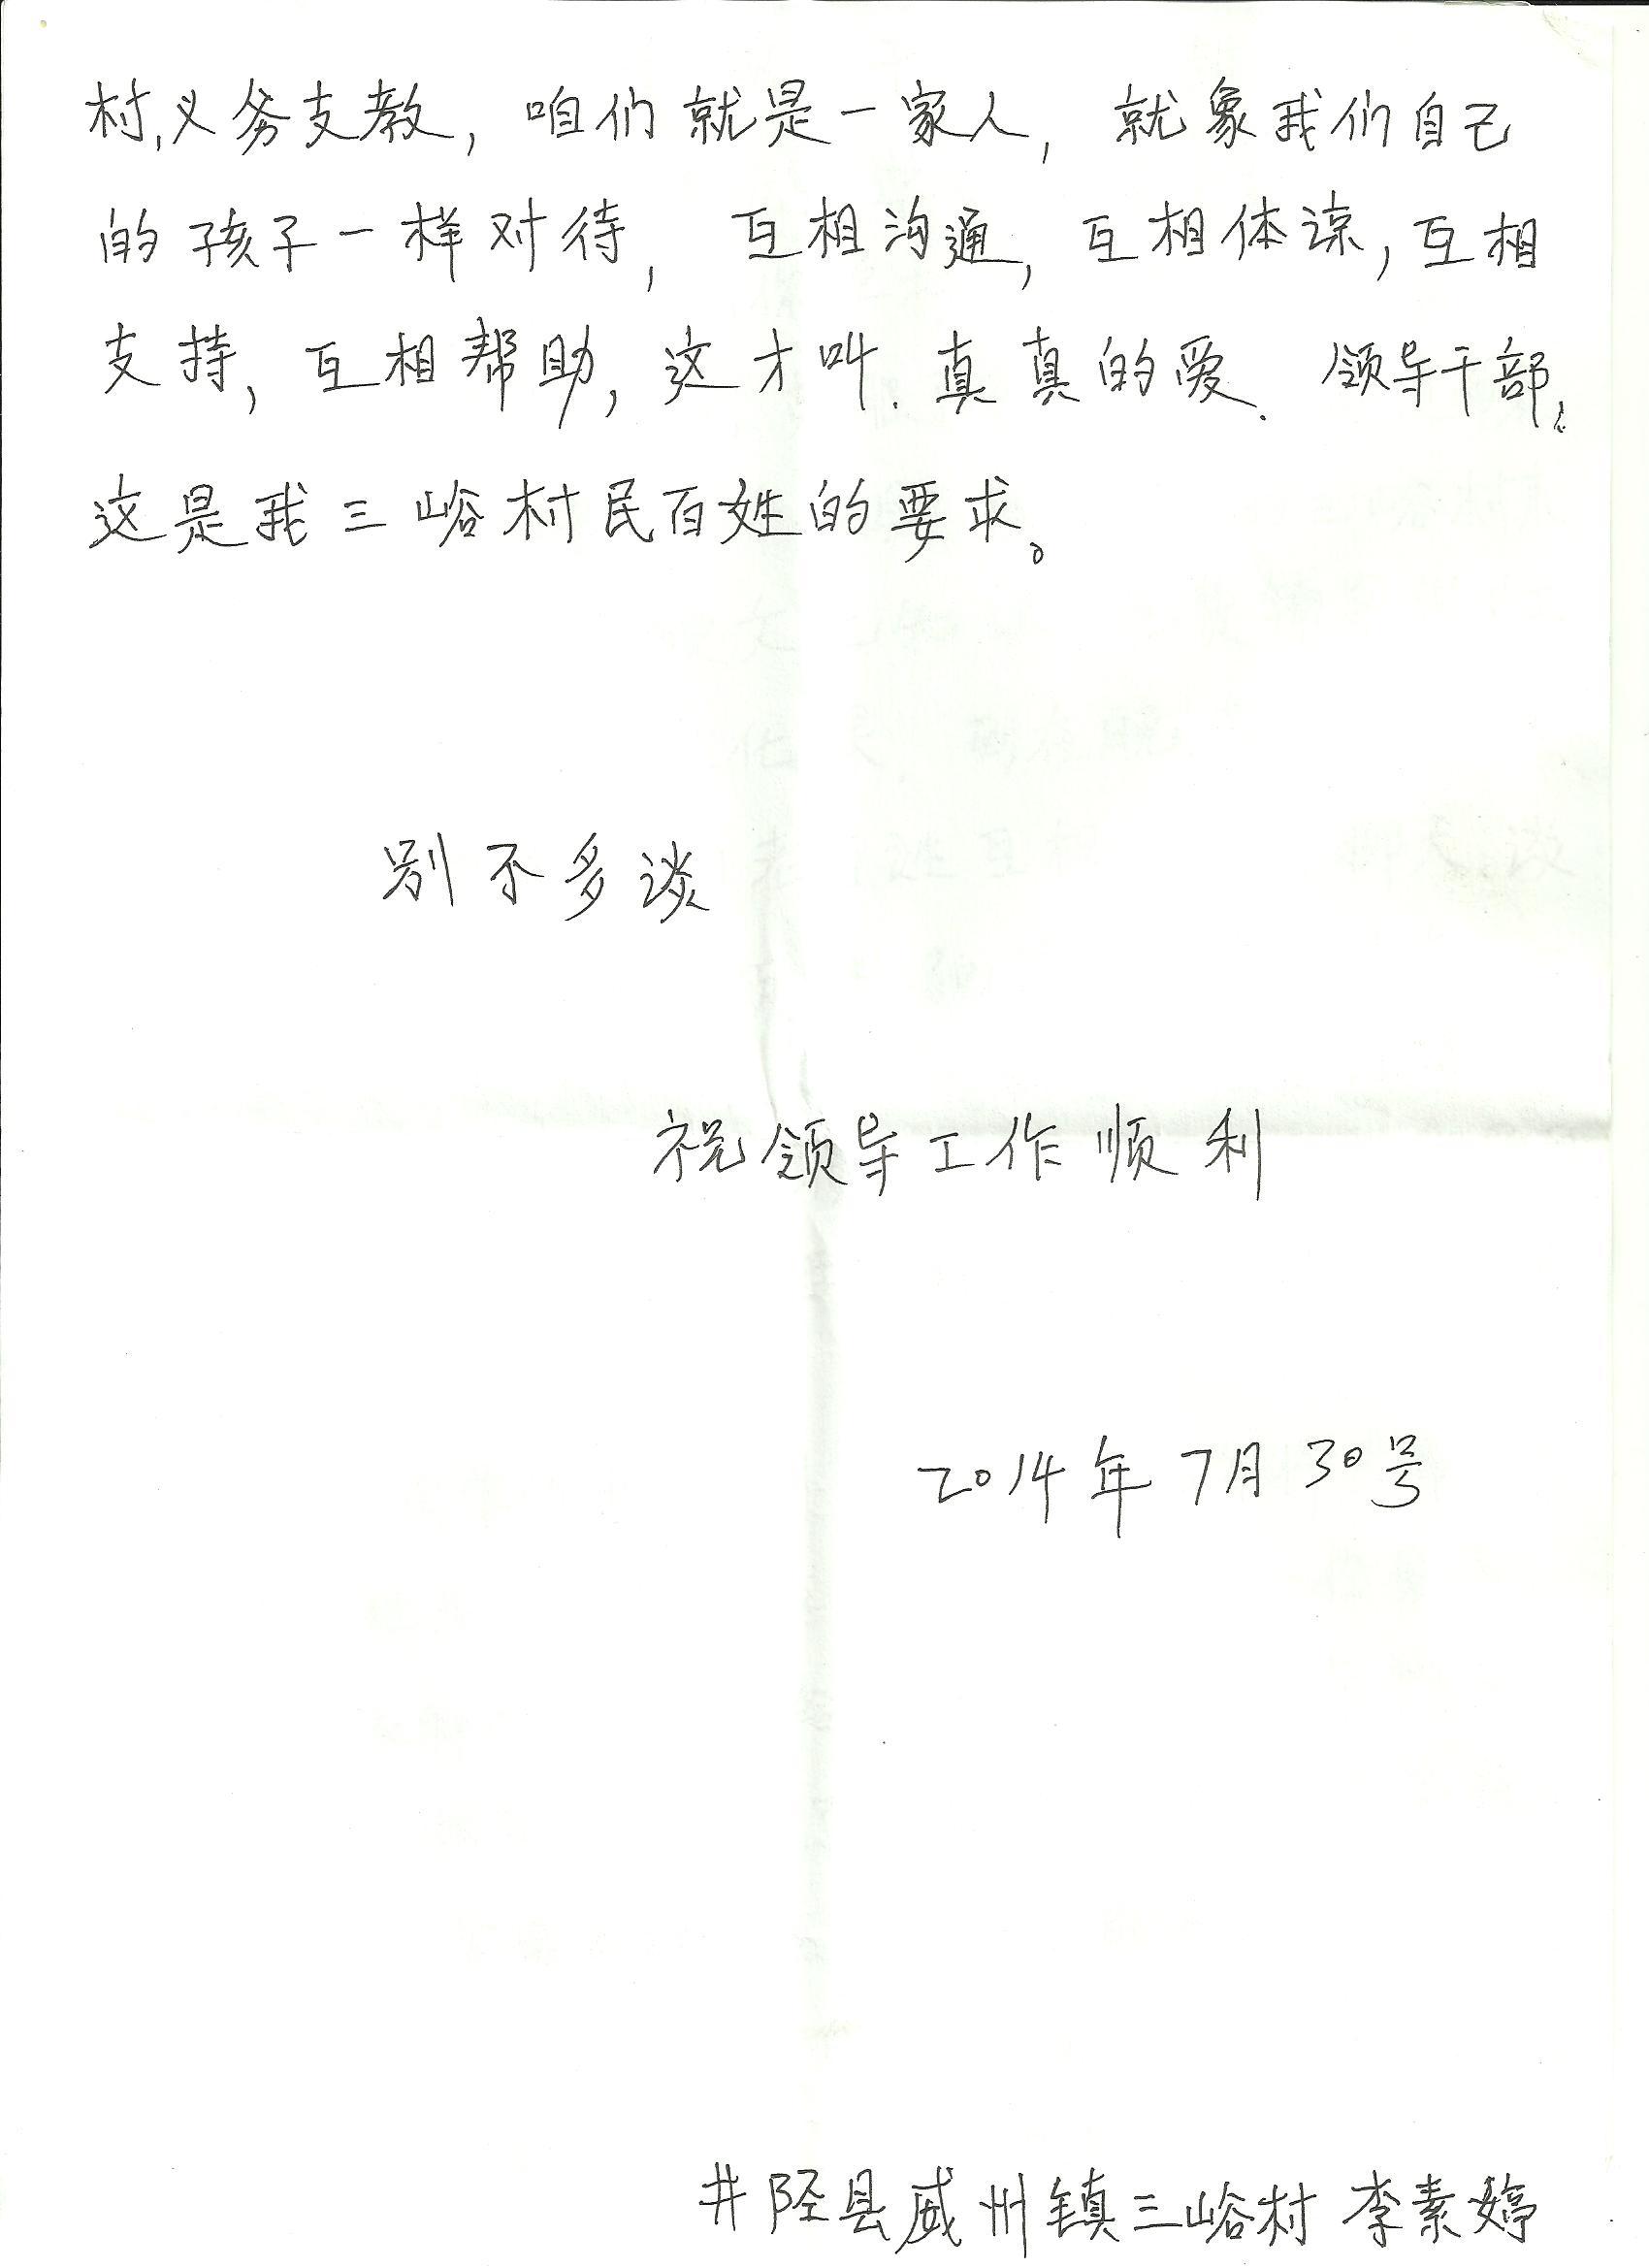 村,义务支教,咱们就是一家人,就象我们自己
的孩子一样对待,互相沟通,互相体谅,互相
支持,互相帮助,这才叫.真真的爱.领导干部,
这是我三峪村民百姓的要求。
别不多谈
祝领导工作顺利
2014年7月30号
井陉县威州镇三峪村李素婷